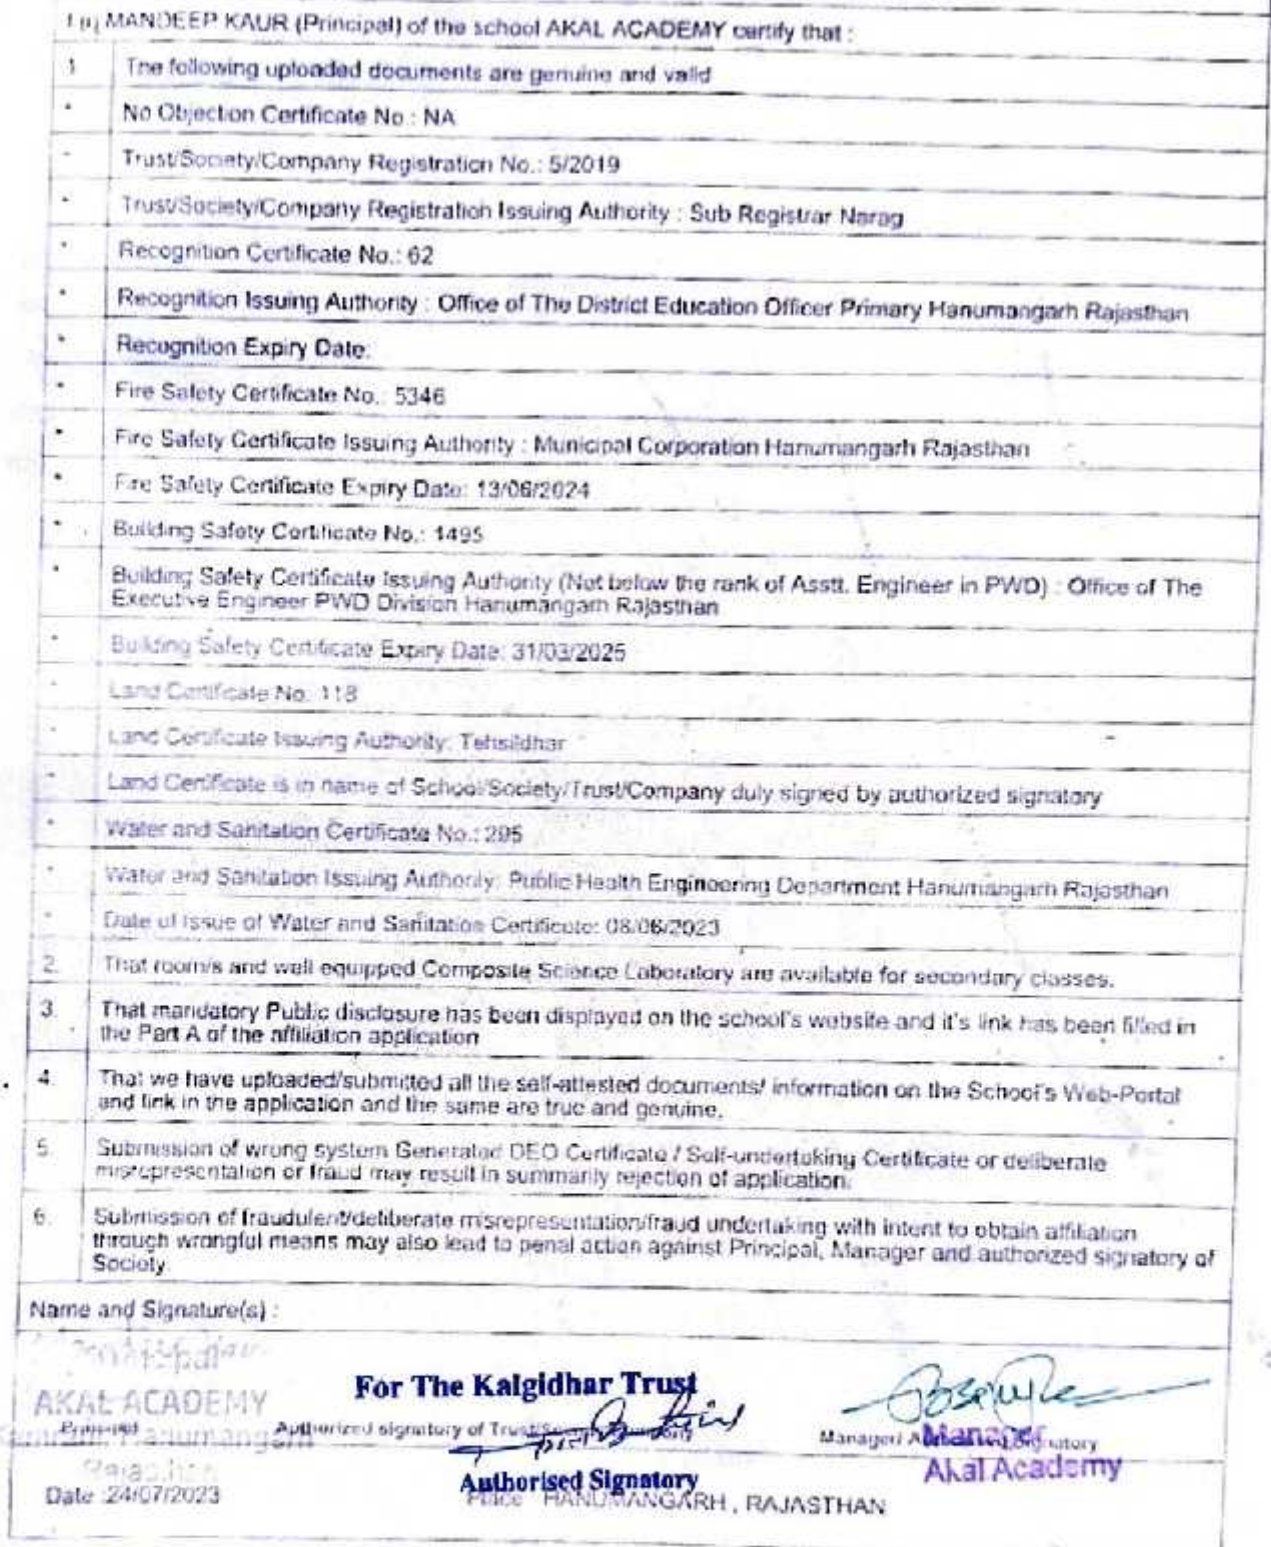 MANDEEP KAUR (Principal) of the school AKAL ACADEMY certify that :
1 The following uploaded documents are genuine and valid
No Objection Certificate No.: NA
Trust/Society/Company Registration No.: 5/2019
Trust/Society/Company Registration Issuing Authority : Sub Registrar Narag
Recognition Certificate No.: 62
Recognition Issuing Authority : Office of The District Education Officer Primary Hanumangarh Rajasthan
Recognition Expiry Date:
Fire Safety Certificate No.: 5346
Fire Safety Certificate Issuing Authority : Municipal Corporation Hanumangarh Rajasthan
Fire Safety Certificate Expiry Date: 13/06/2024
Building Safety Certificate No.: 1495
Building Safety Certificate Issuing Authority (Not below the rank of Asstt. Engineer in PWD) : Office of The
Executive Engineer PWD Division Hanumangarh Rajasthan
Building Safety Certificate Expiry Date: 31/03/2025
Land Certificate No. 118
Land Certificate Issuing Authority: Tehsildhar
Land Certificate is in name of School/Society/Trust/Company duly signed by authorized signatory
Water and Sanitation Certificate No.: 295
Water and Sanitation Issuing Authority: Public Health Engineering Department Hanumangarh Rajasthan
Date of Issue of Water and Sanitation Certificate: 08/06/2023
2. That room/s and well equipped Composite Science Laboratory are available for secondary classes.
3. That mandatory Public disclosure has been displayed on the school's website and it's link has been filled in
the Part A of the affiliation application
4. That we have uploaded/submitted all the self-attested documents/ information on the School's Web-Portal
and link in the application and the same are true and genuine.
5. Submission of wrong system Generated DEO Certificate / Self-undertaking Certificate or deliberate
misrepresentation or fraud may result in summarily rejection of application.
6. Submission of fraudulent/deliberate misrepresentation/fraud undertaking with intent to obtain affiliation
through wrongful means may also lead to penal action against Principal, Manager and authorized signatory of
Society.
Name and Signature(s) :
Principal
AKAL ACADEMY
For The Kalgidhar Trust
Principal
Authorized signatory of Trust
Manager/
Manager
Hanumangarh
Rajasthan
Authorised Signatory
Akal Academy
Date :24/07/2023
Place HANUMANGARH , RAJASTHAN